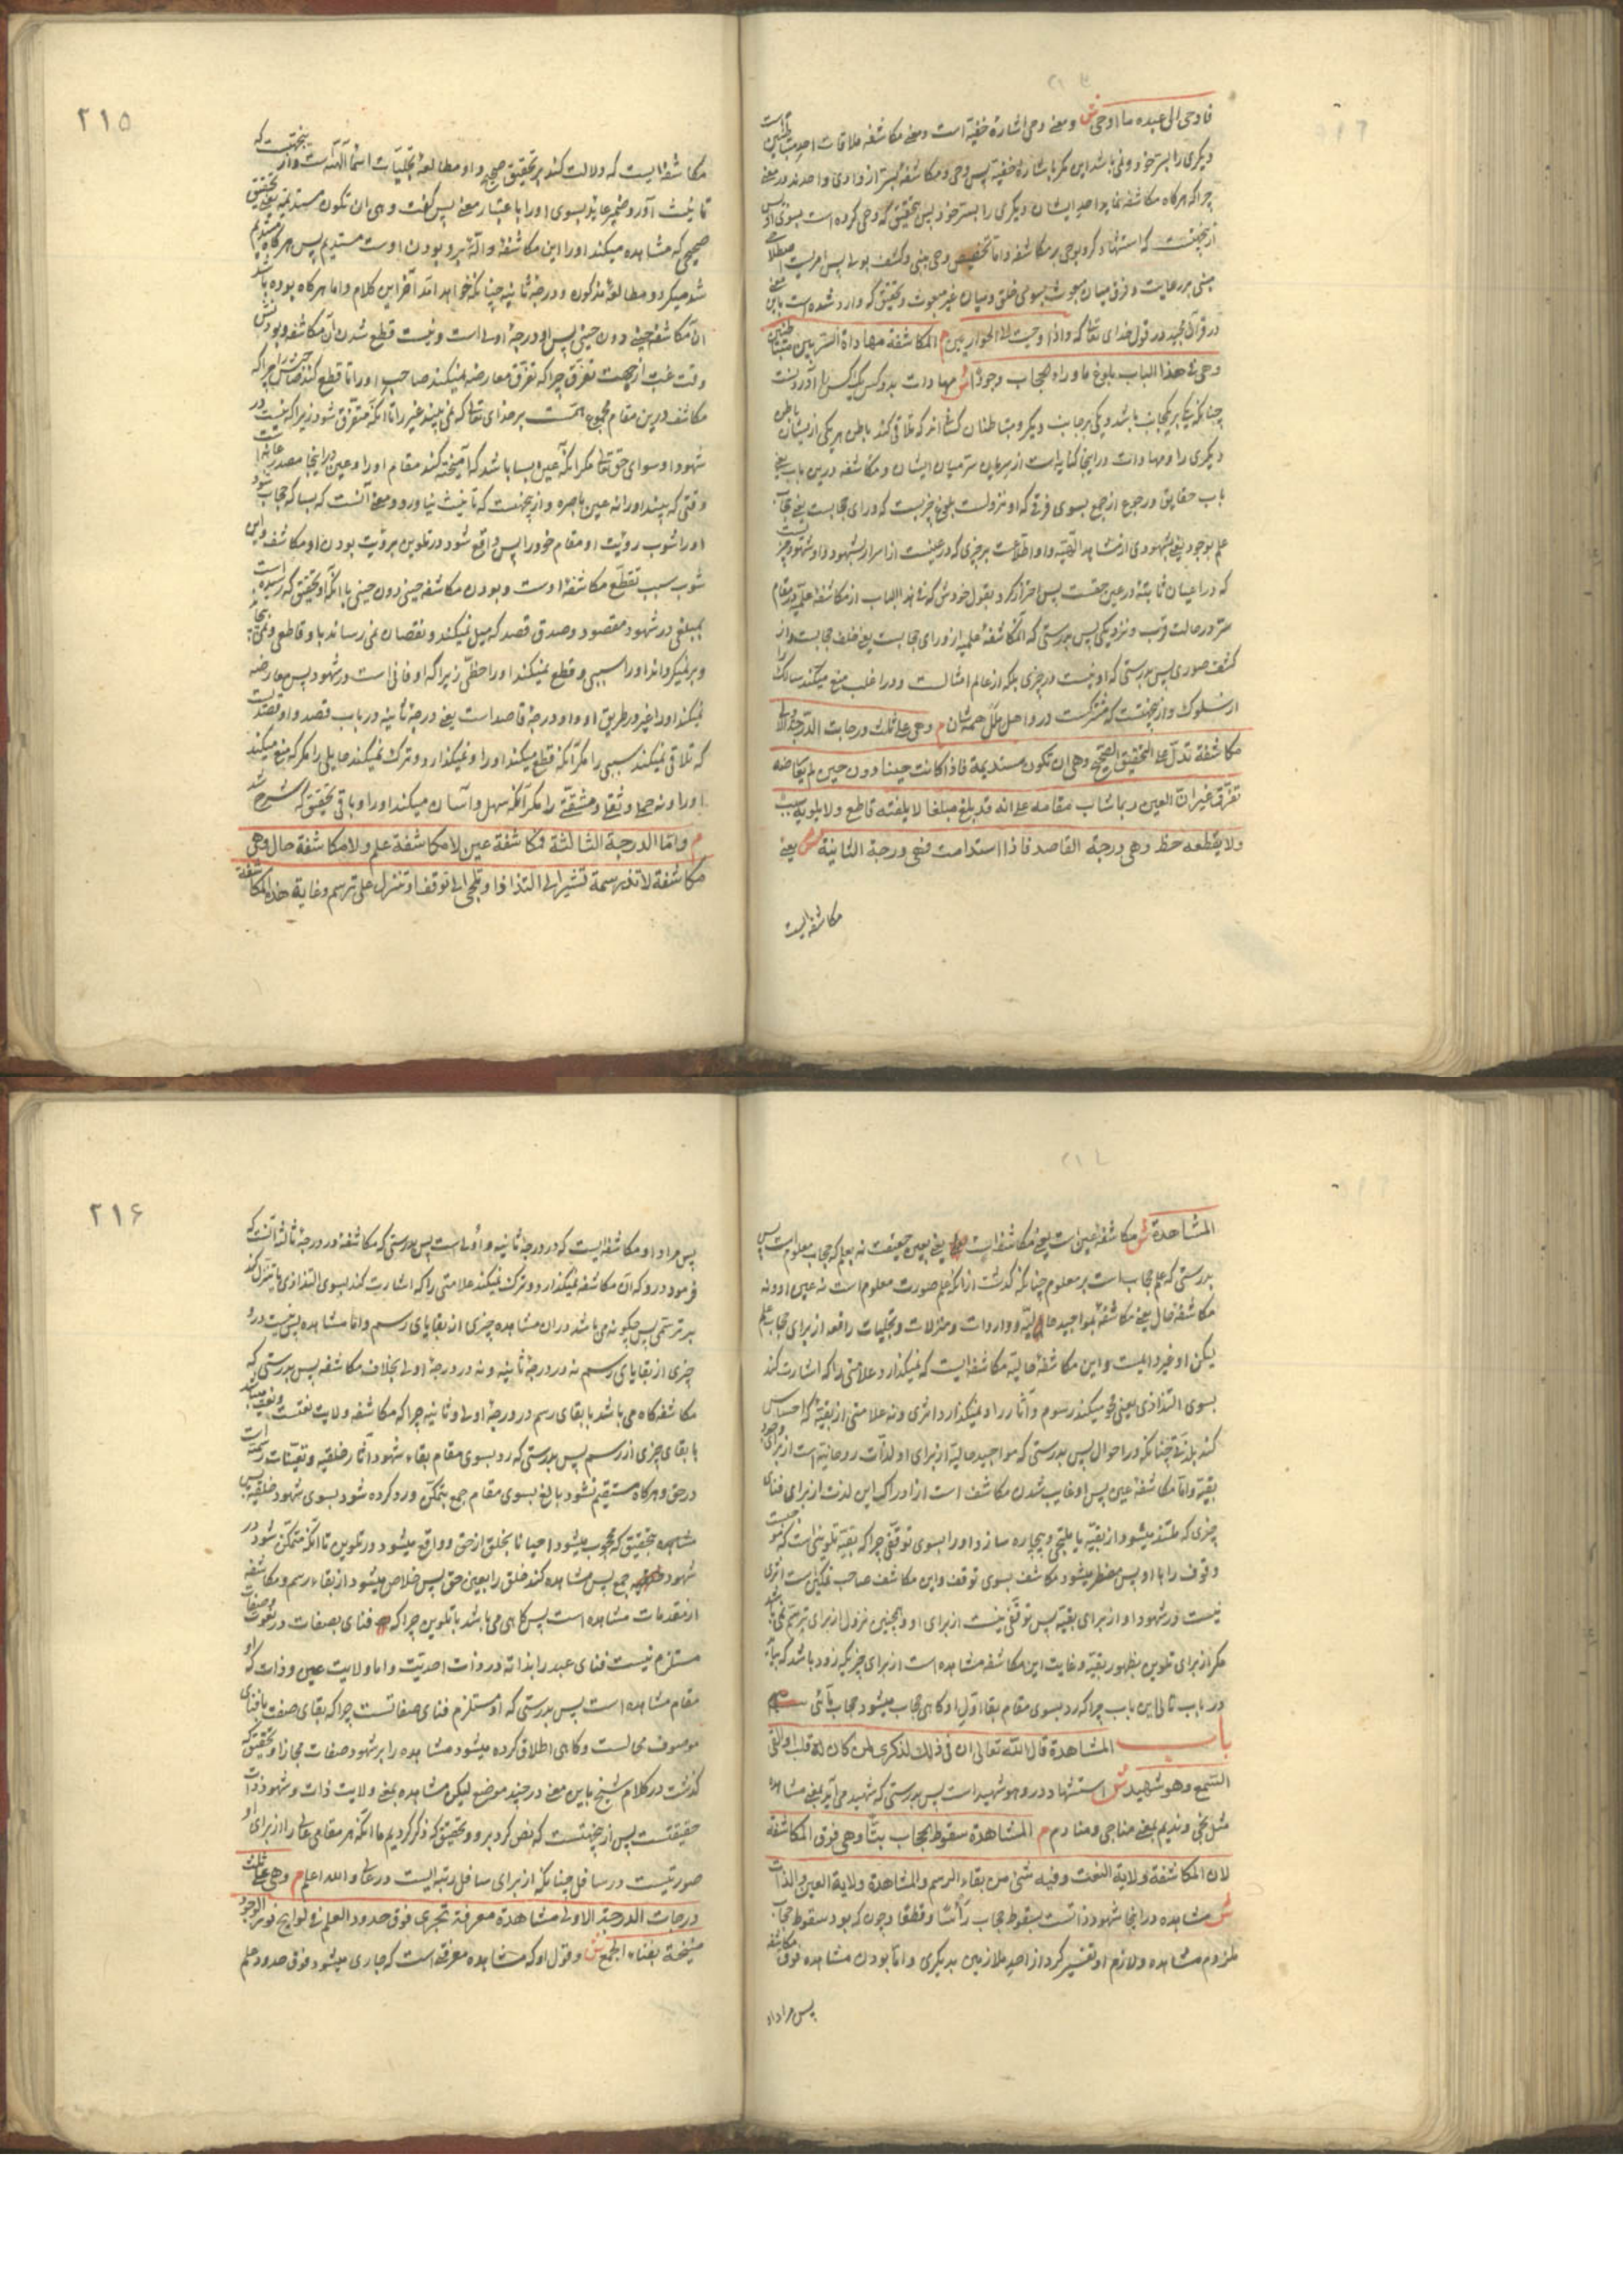 فاوحی الی عبده ما اوحی ش و معنی وحی اشارهٔ خفیّه است و معنی مکاشفه ملاقات احد متباطنین است
دیگری را بسرّ خود و نمی‌باشد این مگر باشارهٔ خفیّه پس وحی و مکاشفه بسرّ از وادی واحدند در معنی
چرا که هرگاه مکاشفه نماید احد ایشان دیگری را بسرّ خود پس بتحقیق که وحی کرده است بسوی او پس
ازینجهتست که استشهاد کرد بوحی بر مکاشفه و اما تخصیص وحی بنبی و کشف بولی پس امریست اصطلاحی
مبنی بر رعایت و فرق میان مبعوث بسوی خلق و میان غیر مبعوث و تحقیق که وارد شده است باین معنی
در قرآن مجید در قول خدای تعالی که واذ اوحیت الی الحواریین م المکاشفة مهاداة السّر بین متباطنین
وهی فی هذا الباب بلوغ ما وراء الحجاب وجوداً ش مهادات بدو کس
چنانکه یکی بر یکجانب باشد و یکی بر جانب دیگر و متباطنان کسانی‌اند که تلاقی کند باطن هر یکی از ایشان باطن
دیگری را و مهادات در اینجا کنایه است از سریان سرّ میان ایشان و مکاشفه درین باب یعنی
باب حقایق و رجوع از جمع بسوی فرق که او نزولست بلوغ چیزیست که ورای حجابست یعنی حجاب
علم بوجود یعنی شهودی
که در اعیان ثابته در عین حقست پس احتراز کرد بقول خودش که فی هذا الباب از مکاشفهٔ علمیّه در مقام
سرّ در حالت قرب و نزدیکی پس بدرستی که آن مکاشفهٔ علمیه از ورای حجابست یعنی خلف حجابست و از
کشف صوری پس بدرستی که او نیست در چیزی بلکه از عالم امثالست و در اغلب منع میکند سالک را
از سلوک و ازینجهتست که مشترکست در او اهل ملل همه‌شان م وهی علی ثلث درجات الدّرجة الاولی
مکاشفة تدلّ علی التحقیق الصّحیح وهی ان تکون مستدیمة فاذا کانت حینا دون حین لم یعارضه
تفرّق غیر انّ العین ربما شاب مقامه علی انه قد بلغ مبلغا لا یلفته قاطع ولا یلویه سبب
ولا یقطعه حظ وهی درجة القاصد فاذا استدامت فهی درجة الثانیة ش یعنی
مکاشفه‌ایست
۲۱۵
مکاشفه‌ایست که دلالت کند بر تحقیق صحیح و او مطالعهٔ تجلیّات اسماء الهیّه است و از ینجهتست که
تانیث آورد ضمیر عاید بسوی او را باعتبار معنی پس گفت وهی ان تکون مستدیمة یعنی تحقیق
صحیحی که مشاهده میکند او را این مکاشفه و الّه برو بودن اوست مستدیم پس هرگاه مستدیم
شد میگردد مطالعهٔ مذکون و درجهٔ ثانیه چنانکه خواهد آمد آخر این کلام و اما هرگاه بوده باشد
ان مکاشفه حینی دون حینی پس او درجهٔ اولی است و نیست قطع شدن آن مکاشفه و بودنش
وقت غبت از جهت تفرّق چرا که تفرّق معارضه نمیکند صاحب او را تا قطع کند
مکاشف درین مقام مجموع الهمّت بر خدای تعالی که نمی‌بیند غیر را تا آنکه متفرّق شود زیرا که نیست در
شهود او سوای حق تعالی مگر آنکه عین بسا باشد که آمیخته کند مقام او را و عین در اینجا مصدر عانه است
وقتی که بیند او را نه عین باصره و از ینجهتست که تانیث نیاورد و معنی آنست که بسا که حجاب شود
او را شوب رؤیت او مقام خود را پس واقع شود در تلوین برؤیت بودن او مکاشف و این
شوب سبب تقطّع مکاشفهٔ اوست و بودن مکاشفه حینی دون حینی با آنکه او بتحقیق که رسیده است
بمبلغی در شهود مقصود و صدق قصد که میل نمیکند و نقصان نمی‌رساند باو قاطعی و نمی‌پیچاند
و برنمیگرداند او را سببی و قطع نمیکند او را حظّی زیرا که او فانی است در شهود پس معارضه
نمیکند او را چیزی در طریق او و او درجهٔ قاصد است یعنی درجهٔ ثانیه در باب قصد و او قصدیست
که تلاقی نمیکند سببی را مگر آنکه قطع میکند او را و نمیگذارد و ترک نمیکند حایلی را مگر که منع میکند
او را و نه حملی و ثقلی و مشقّتی را مگر آنکه سهل و آسان میکند او را و باقی بتحقیق که شرح شد
م وامّا الدرجة الثالثة فمکاشفة عین لا مکاشفة علم ولا مکاشفة حال وهی
مکاشفة لا تذر سمة تشیر الی التذاذ او تلجی الی توقف او تنزل علی ترسم وغایة هذه المکاشفة
المشاهدة ش مکاشفهٔ عین است یعنی مکاشفه‌ایست یعنی بعین حقیقت نه بعلم که حجاب معلوم است پس
بدرستی که علم حجاب است بر معلوم چنانکه گذشت از آنکه علم صورت معلوم است نه عین او و نه
مکاشفهٔ حال یعنی مکاشفهٔ بمواجید حالیّه و واردات و منزلات و تجلیات رافعه از برای حجاب علم
لیکن او غیر دایمست و این مکاشفهٔ حالیّه مکاشفه‌ایست که نمیگذارد علامتی را که اشارت کند
بسوی التذاذی یعنی محو میکند رسوم و آثار را و نمیگذارد اثری و نه علامتی از بقیّهٔ که احساس
کند بلذّتی چنانکه در احوال پس بدرستی که مواجید حالیّه از برای او لذّات روحانیّه است از برای وجود
بقیّه و امّا مکاشفهٔ عین پس او غایب شدن مکاشف است از ادراک این لذت از برای فنای
چیزی که ملتذ میشود از بقیّه یا ملتجی و بیچاره سازد او را بسوی توقّفی چرا که بقیّه تلوینی است که موجبست
وقوف را با او پس مضطر میشود مکاشف بسوی توقف و این مکاشف صاحب تمکین است اثری
نیست در شهود او از برای بقیّه پس توقّفی نیست از برای او و همچنین نزول از برای ترسّم نمی‌باشد
مگر از برای تلوین بظهور بقیّه و غایت این مکاشفه مشاهده است از برای چیزیکه زود باشد که بیاید
در باب تالی این باب چرا که رد بسوی مقام بقا اوّل او گاهی حجاب میشود
باب المشاهدة قال الله تعالی ان فی ذلک لذکری لمن کان له قلب او القی
السّمع وهو شهید ش استشهاد در وهو شهید است پس بدرستی که شهید می‌آید بمعنی مشاهد
مثل نجی و ندیم بمعنی مناجی و منادم م المشاهدة سقوط الحجاب بتّا وهی فوق المکاشفة
لان المکاشفة ولایة النعت وفیه شیء من بقاء الرسم والمشاهدة ولایة العین والذات
ش مشاهده در اینجا شهود ذاتست بسقوط حجاب رأساً و قطعا و چون که بود سقوط حجاب
ملزوم مشاهده و لازم او تفسیر کرد از احد ملازمین بدیگری و اما بودن مشاهده فوق مکاشفه
پس مراد او
۲۱۶
پس مراد او مکاشفه‌ایست که در درجهٔ ثانیه و اولی است پس بدرستی که مکاشفه در درجهٔ ثالثه آنست که
فرمود درو که ان مکاشفه نمیگذارد و ترک نمیکند علامتی را که اشارت کند بسوی التذاذی یا تنزل کند
بر ترسّمی پس چگونه می‌باشد در ان مشاهده چیزی از بقایای رسم و اما مشاهده پس نیست درو
چیزی از بقایای رسم نه در درجهٔ ثانیه و نه در درجهٔ اولی بخلاف مکاشفه پس بدرستی که
مکاشفه گاه می‌باشد با بقای رسم در درجهٔ اولی و ثانیه چرا که مکاشفه ولایت نعتست و نعت میباشد
با بقای چیزی از رسم پس بدرستی که رد بسوی مقام بقاء شهود آثار خلقیّه و تعیّنات رسمیّه است
در حق و هرگاه مستقیم نشود بالغ بسوی مقام جمع بتمکّن ورد کرده شود بسوی شهود خلقیّه پس
مشاهده بتحقیق که محجوب میشود احیانا بخلق از حق و واقع میشود در تلوین تا آنکه متمکّن شود در
شهود جمع پس مشاهده کند خلق را بعین حق پس خلاص میشود از بقاء رسم و مکاشفه
از مقدمات مشاهده است پس گاهی می‌باشد با تلوین چرا که فنای بصفات در نعوت و صفات
مستلزم نیست فنای عبد را بذاته در ذات احدیّت و اما ولایت عین و ذات که او
مقام مشاهده است پس بدرستی که او مستلزم فنای صفاتست چرا که بقای صفت با فنای
موصوف محالست و گاهی اطلاق کرده میشود مشاهده را بر شهود صفات مجازا و بتحقیق که
گذشت در کلام شیخ باین معنی در چند موضع لیکن مشاهده بمعنی ولایت ذات و شهود ذات
حقیقتست پس ازینجهتست که نص کرد برو و بتحقیق که ذکر کردیم ما آنکه هر مقامی عالی را از برای او
صورتیست در سافل چنانکه از برای سافل رتبه‌ایست در عالی والله اعلم م وهی علی ثلث
درجات الدرجة الاولی مشاهدة معرفة تجری فوق حدود العلم فی لوایح نور الوجود
منیخة بفناء الجمع ش و قول او که مشاهده معرفة است که جاری میشود فوق حدود علم